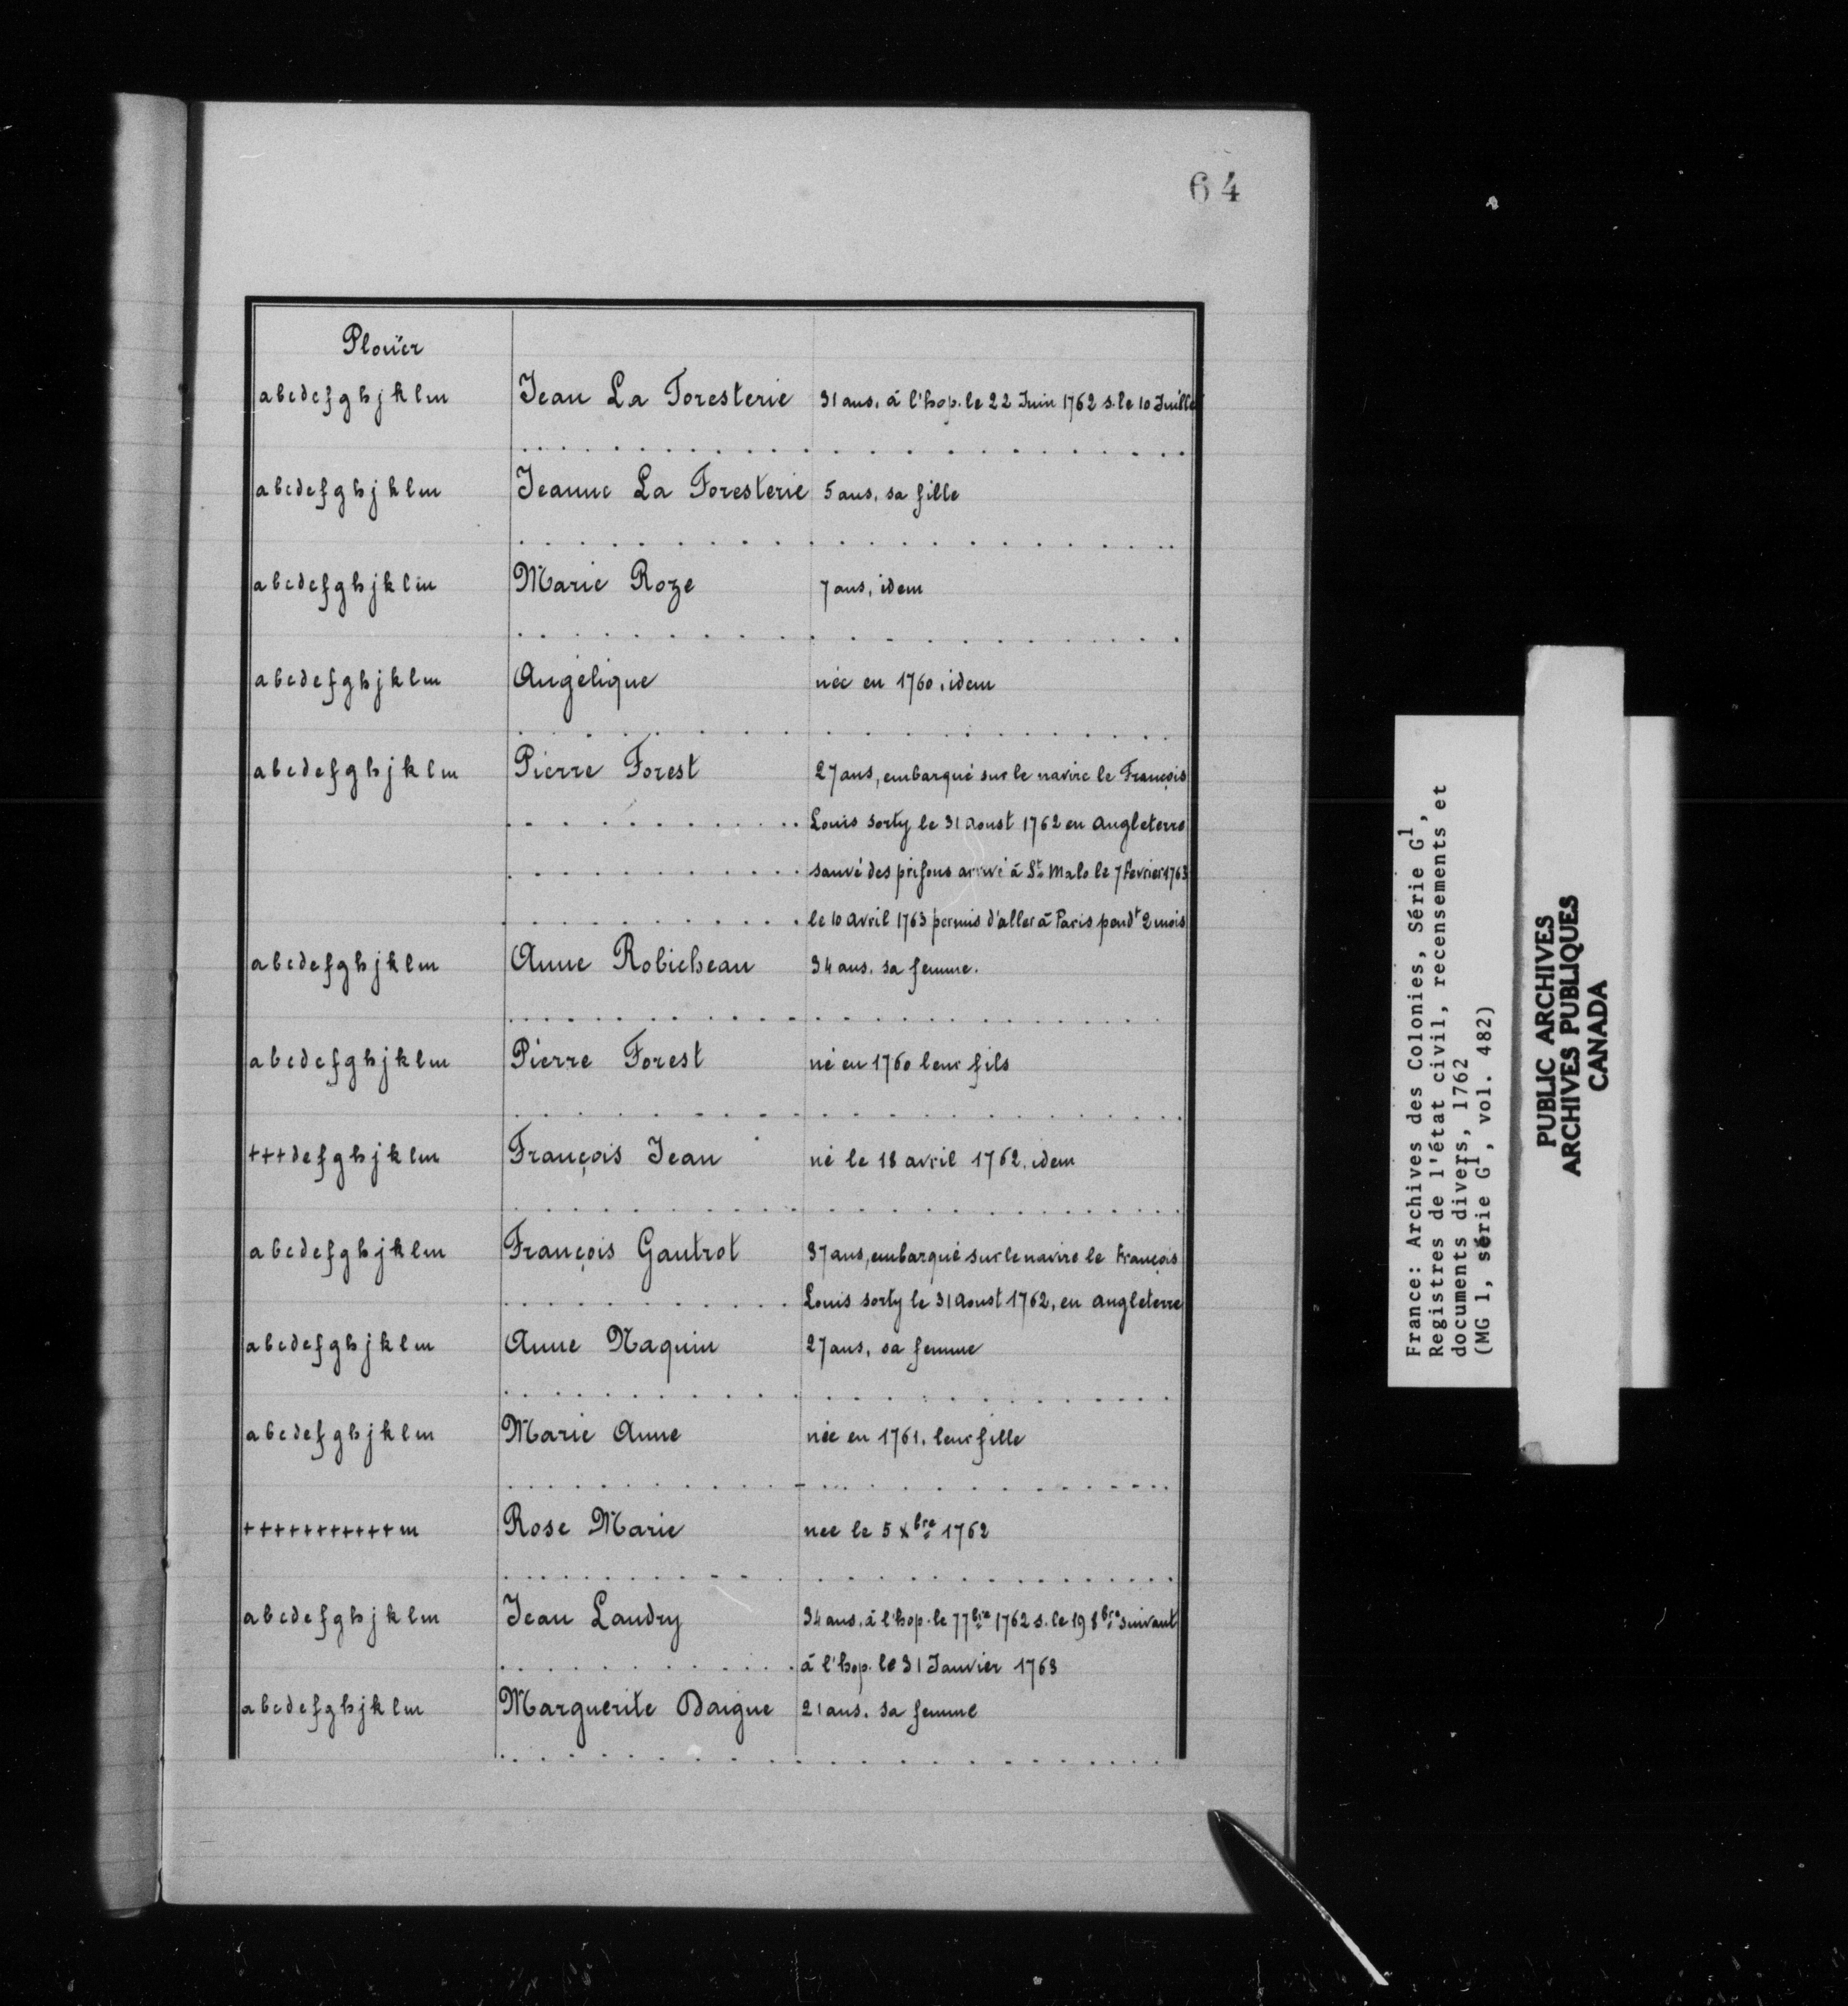 64
Plouër
abcdefghjklm Jean La Foresterie 31 ans, à l'hop. le 22 Juin 1762 s. le 10 Juillet
abcdefghjklm Jeanne La Foresterie 5 ans, sa fille
abcdefghjklm Marie Roze 7 ans, idem
abcdefghjklm Angélique née en 1760, idem
abcdefghjklm Pierre Forest 27 ans, embarqué sur le navire le François
Louis sorty le 31 aoust 1762 en angleterre
sauvé des prisons arrivé à St. Malo le 7 fevrier 1763
le 10 avril 1763 permis d'aller à Paris pendt 2 mois
abcdefghjklm Anne Robicheau 34 ans, sa femme.
abcdefghjklm Pierre Forest né en 1760 leur fils
+++defghjklm François Jean né le 18 avril 1762, idem
abcdefghjklm François Gautrot 37 ans, embarqué sur le navire le françois
Louis sorty le 31 aoust 1762, en angleterre
abcdefghjklm Anne Maquin 27 ans, sa femme
abcdefghjklm Marie Anne née en 1761, leur fille
+++++++++++m Rose Marie née le 5 xbre 1762
abcdefghjklm Jean Landry 34 ans, à l'hop. le 7 7bre 1762 s. le 19 8bre suivant
à l'hop. le 31 Janvier 1763
abcdefghjklm Marguerite Daigue 21 ans, sa femme
France: Archives des Colonies, Série G1,
Registres de l'état civil, recensements, et
documents divers, 1762
(MG 1, série G1, vol. 482)
PUBLIC ARCHIVES
ARCHIVES PUBLIQUES
CANADA